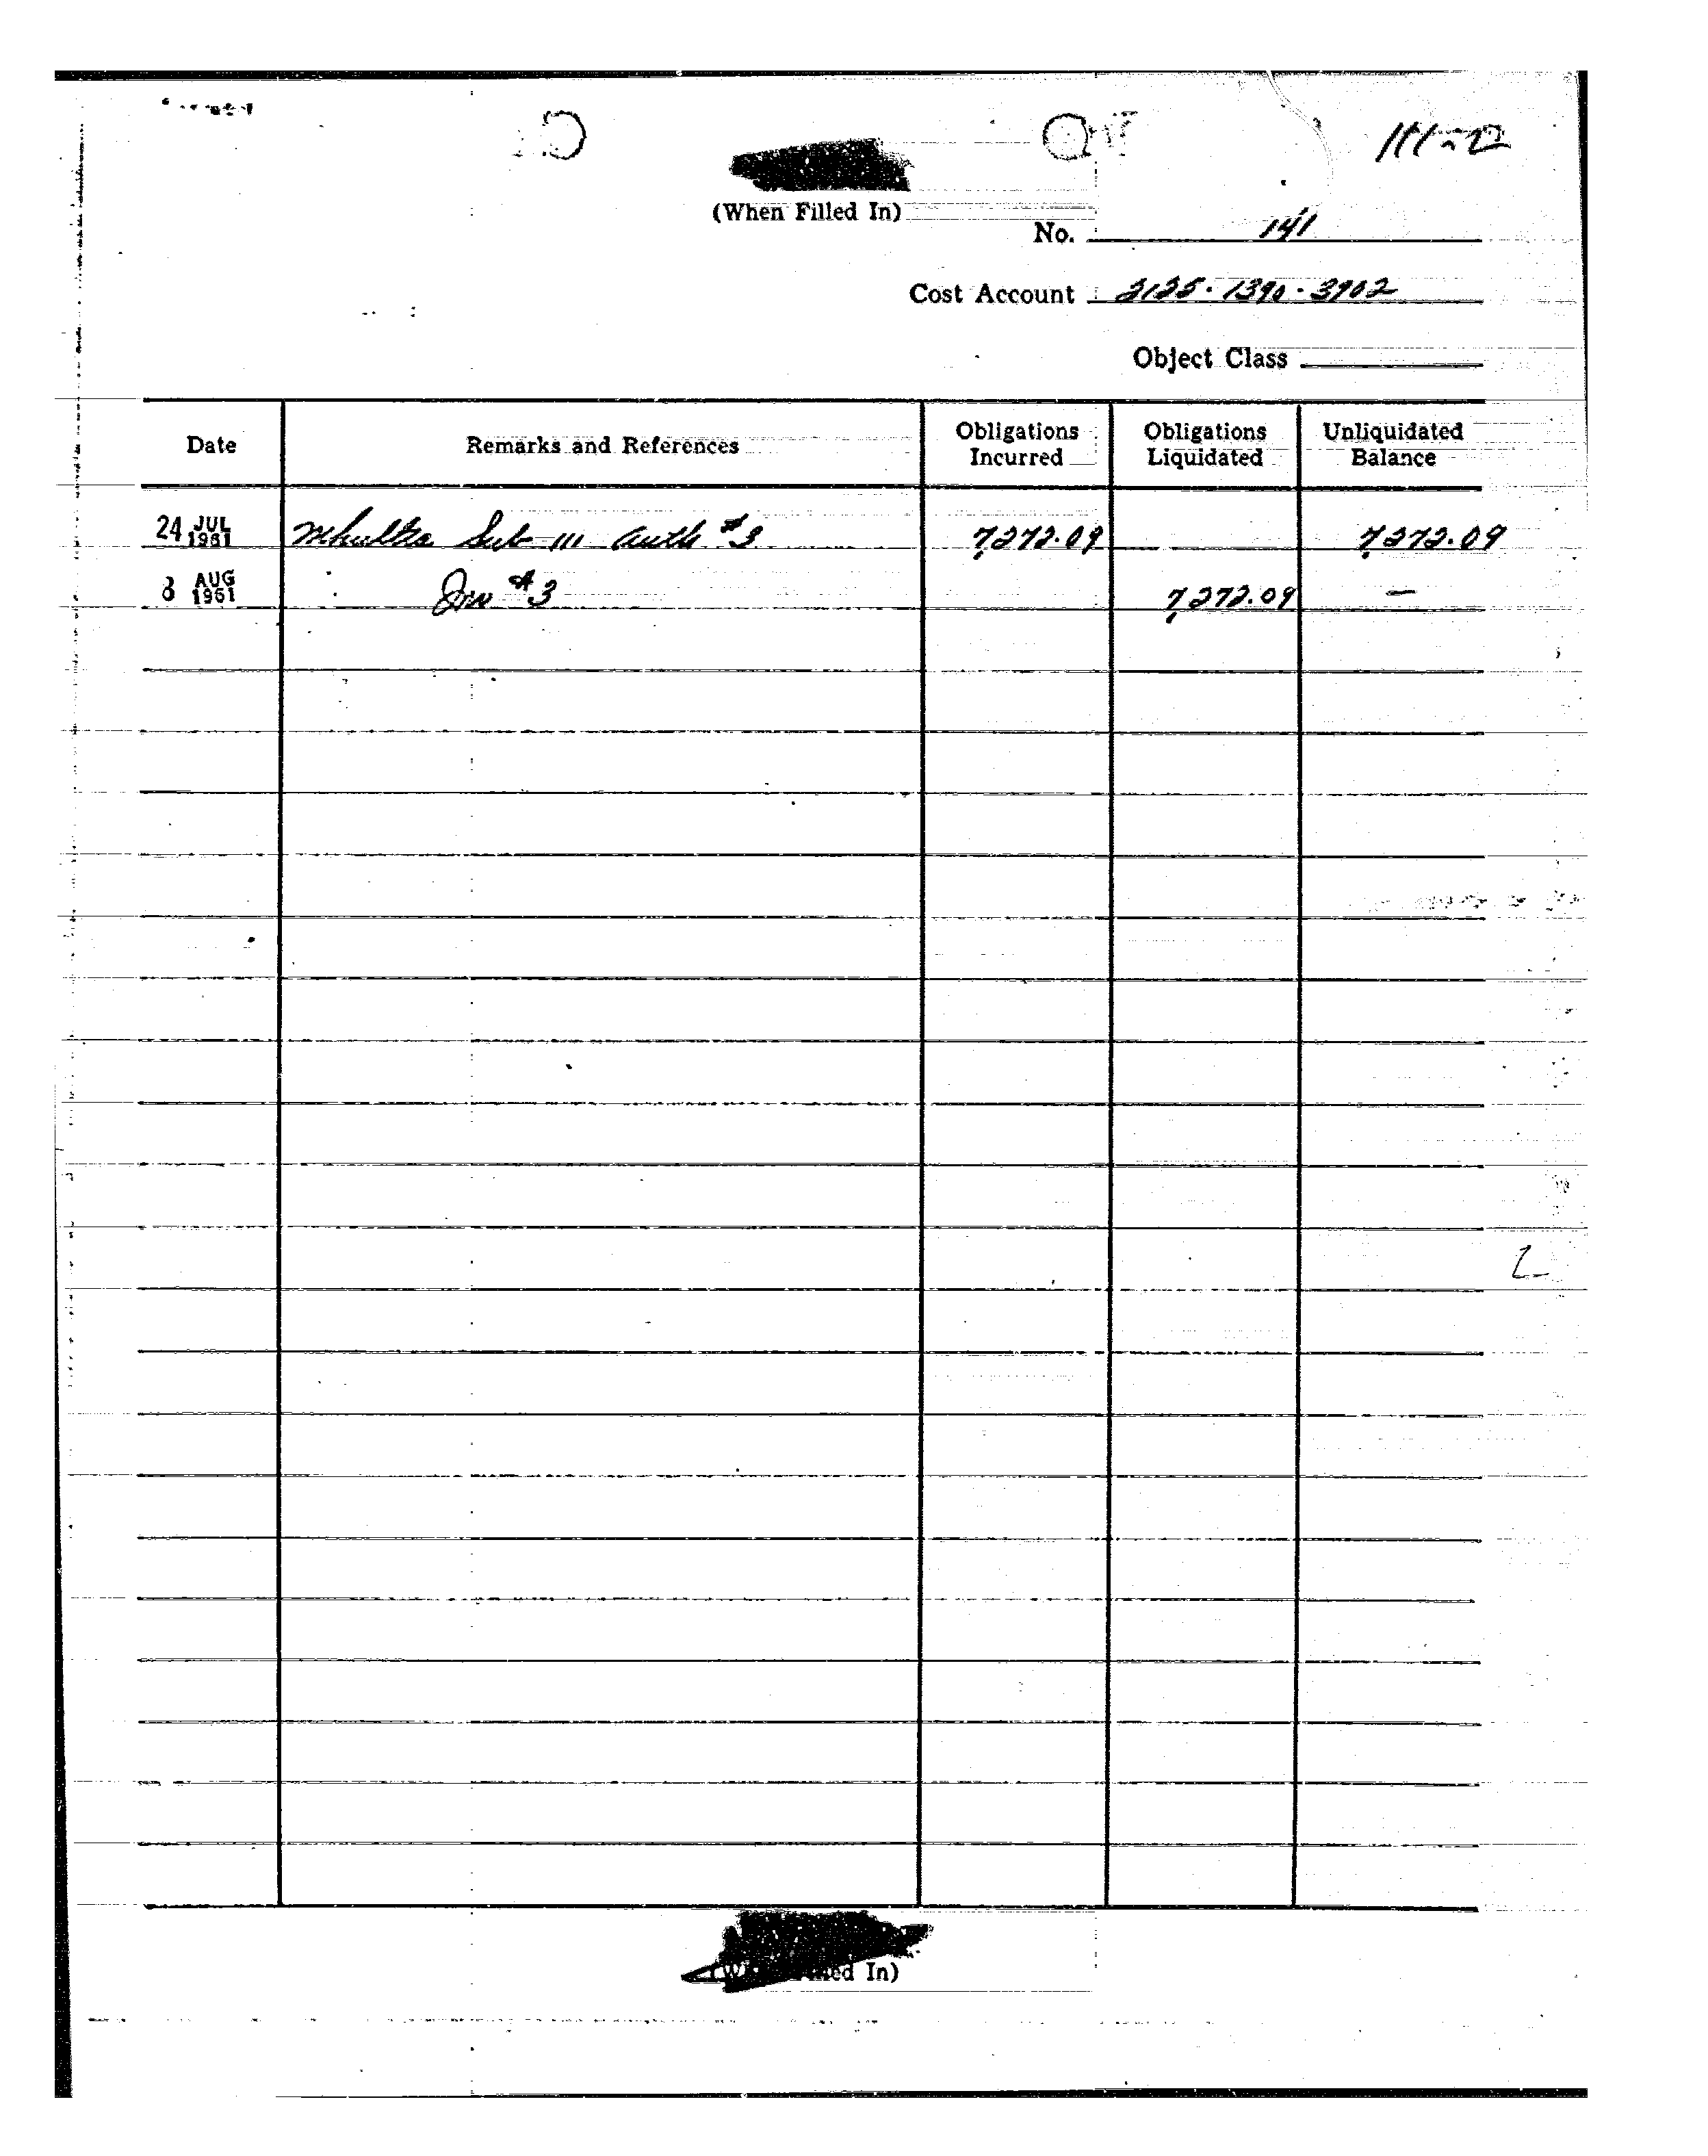 (When Filled In)
No. 141
Cost Account 2125-1390-3902
Object Class
Date Remarks and References Obligations Incurred Obligations Liquidated Unliquidated Balance
24 JUL 1961 Mkultra Sub 111 Auth #3 7,272.09 7,272.09
8 AUG 1961 Inv #3 7,272.09 —
ed In)